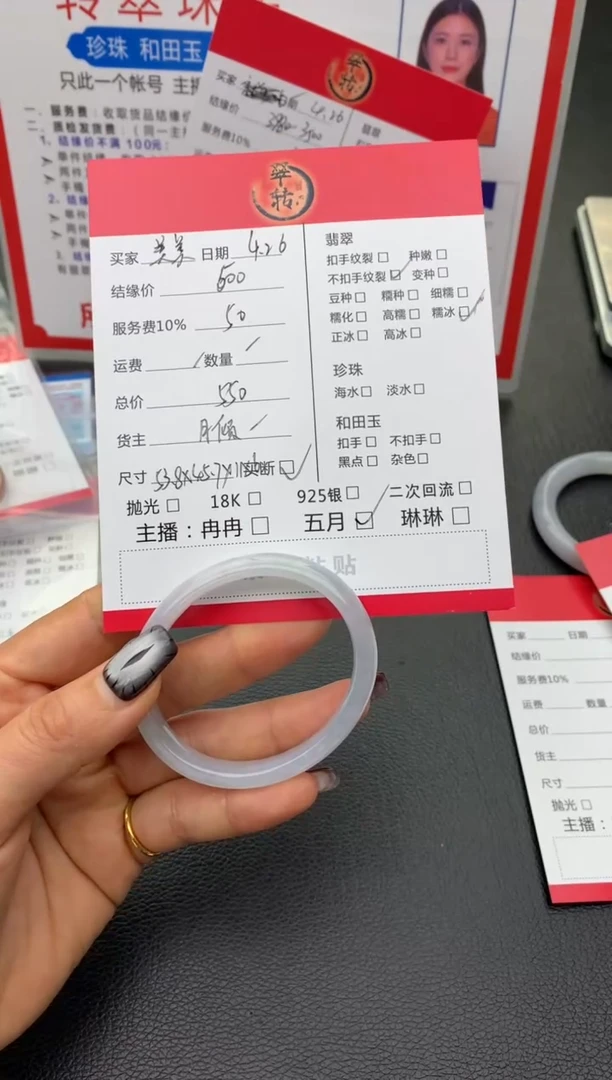 转翠珠
珍珠 和田玉
只此一个帐号 主播
一、服务费：收取货品结缘价
二、质检发货费：（同一主播
1、结缘价不满 100元：
买家
日期 4.26
结缘价 380 350
服务费10%
翡翠
翠
转
买家 美美 日期 4.26
结缘价 500
服务费10% 50
运费 / 数量 /
总价 550
货主 月倾 /
尺寸 53.8X45.7X11 实断
翡翠
扣手纹裂 种嫩
不扣手纹裂 变种
豆种 糯种 细糯
糯化 高糯 糯冰
正冰 高冰
珍珠
海水 淡水
和田玉
扣手 不扣手
黑点 杂色
抛光 18K 925银 二次回流
主播：冉冉 五月 琳琳
粘贴
买家 日期
结缘价
服务费10%
运费 数量
总价
货主
尺寸
抛光
主播：